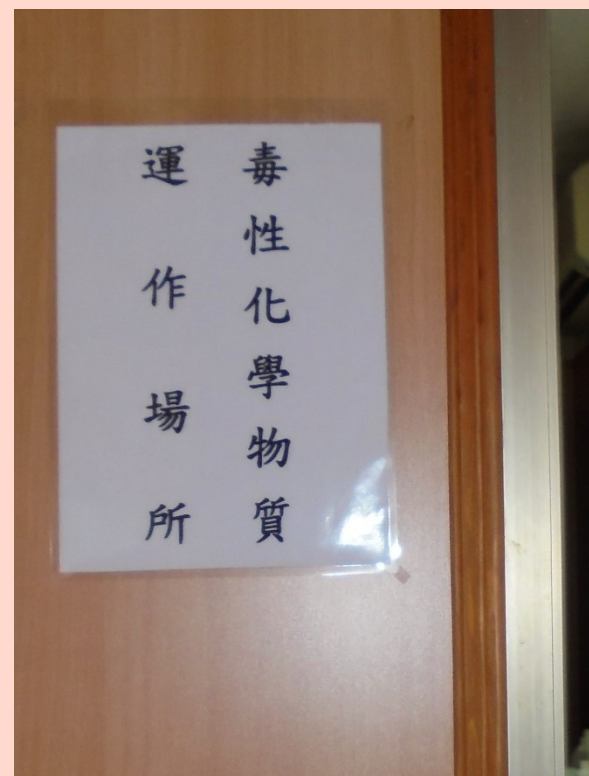 毒性化學物質
運作場所